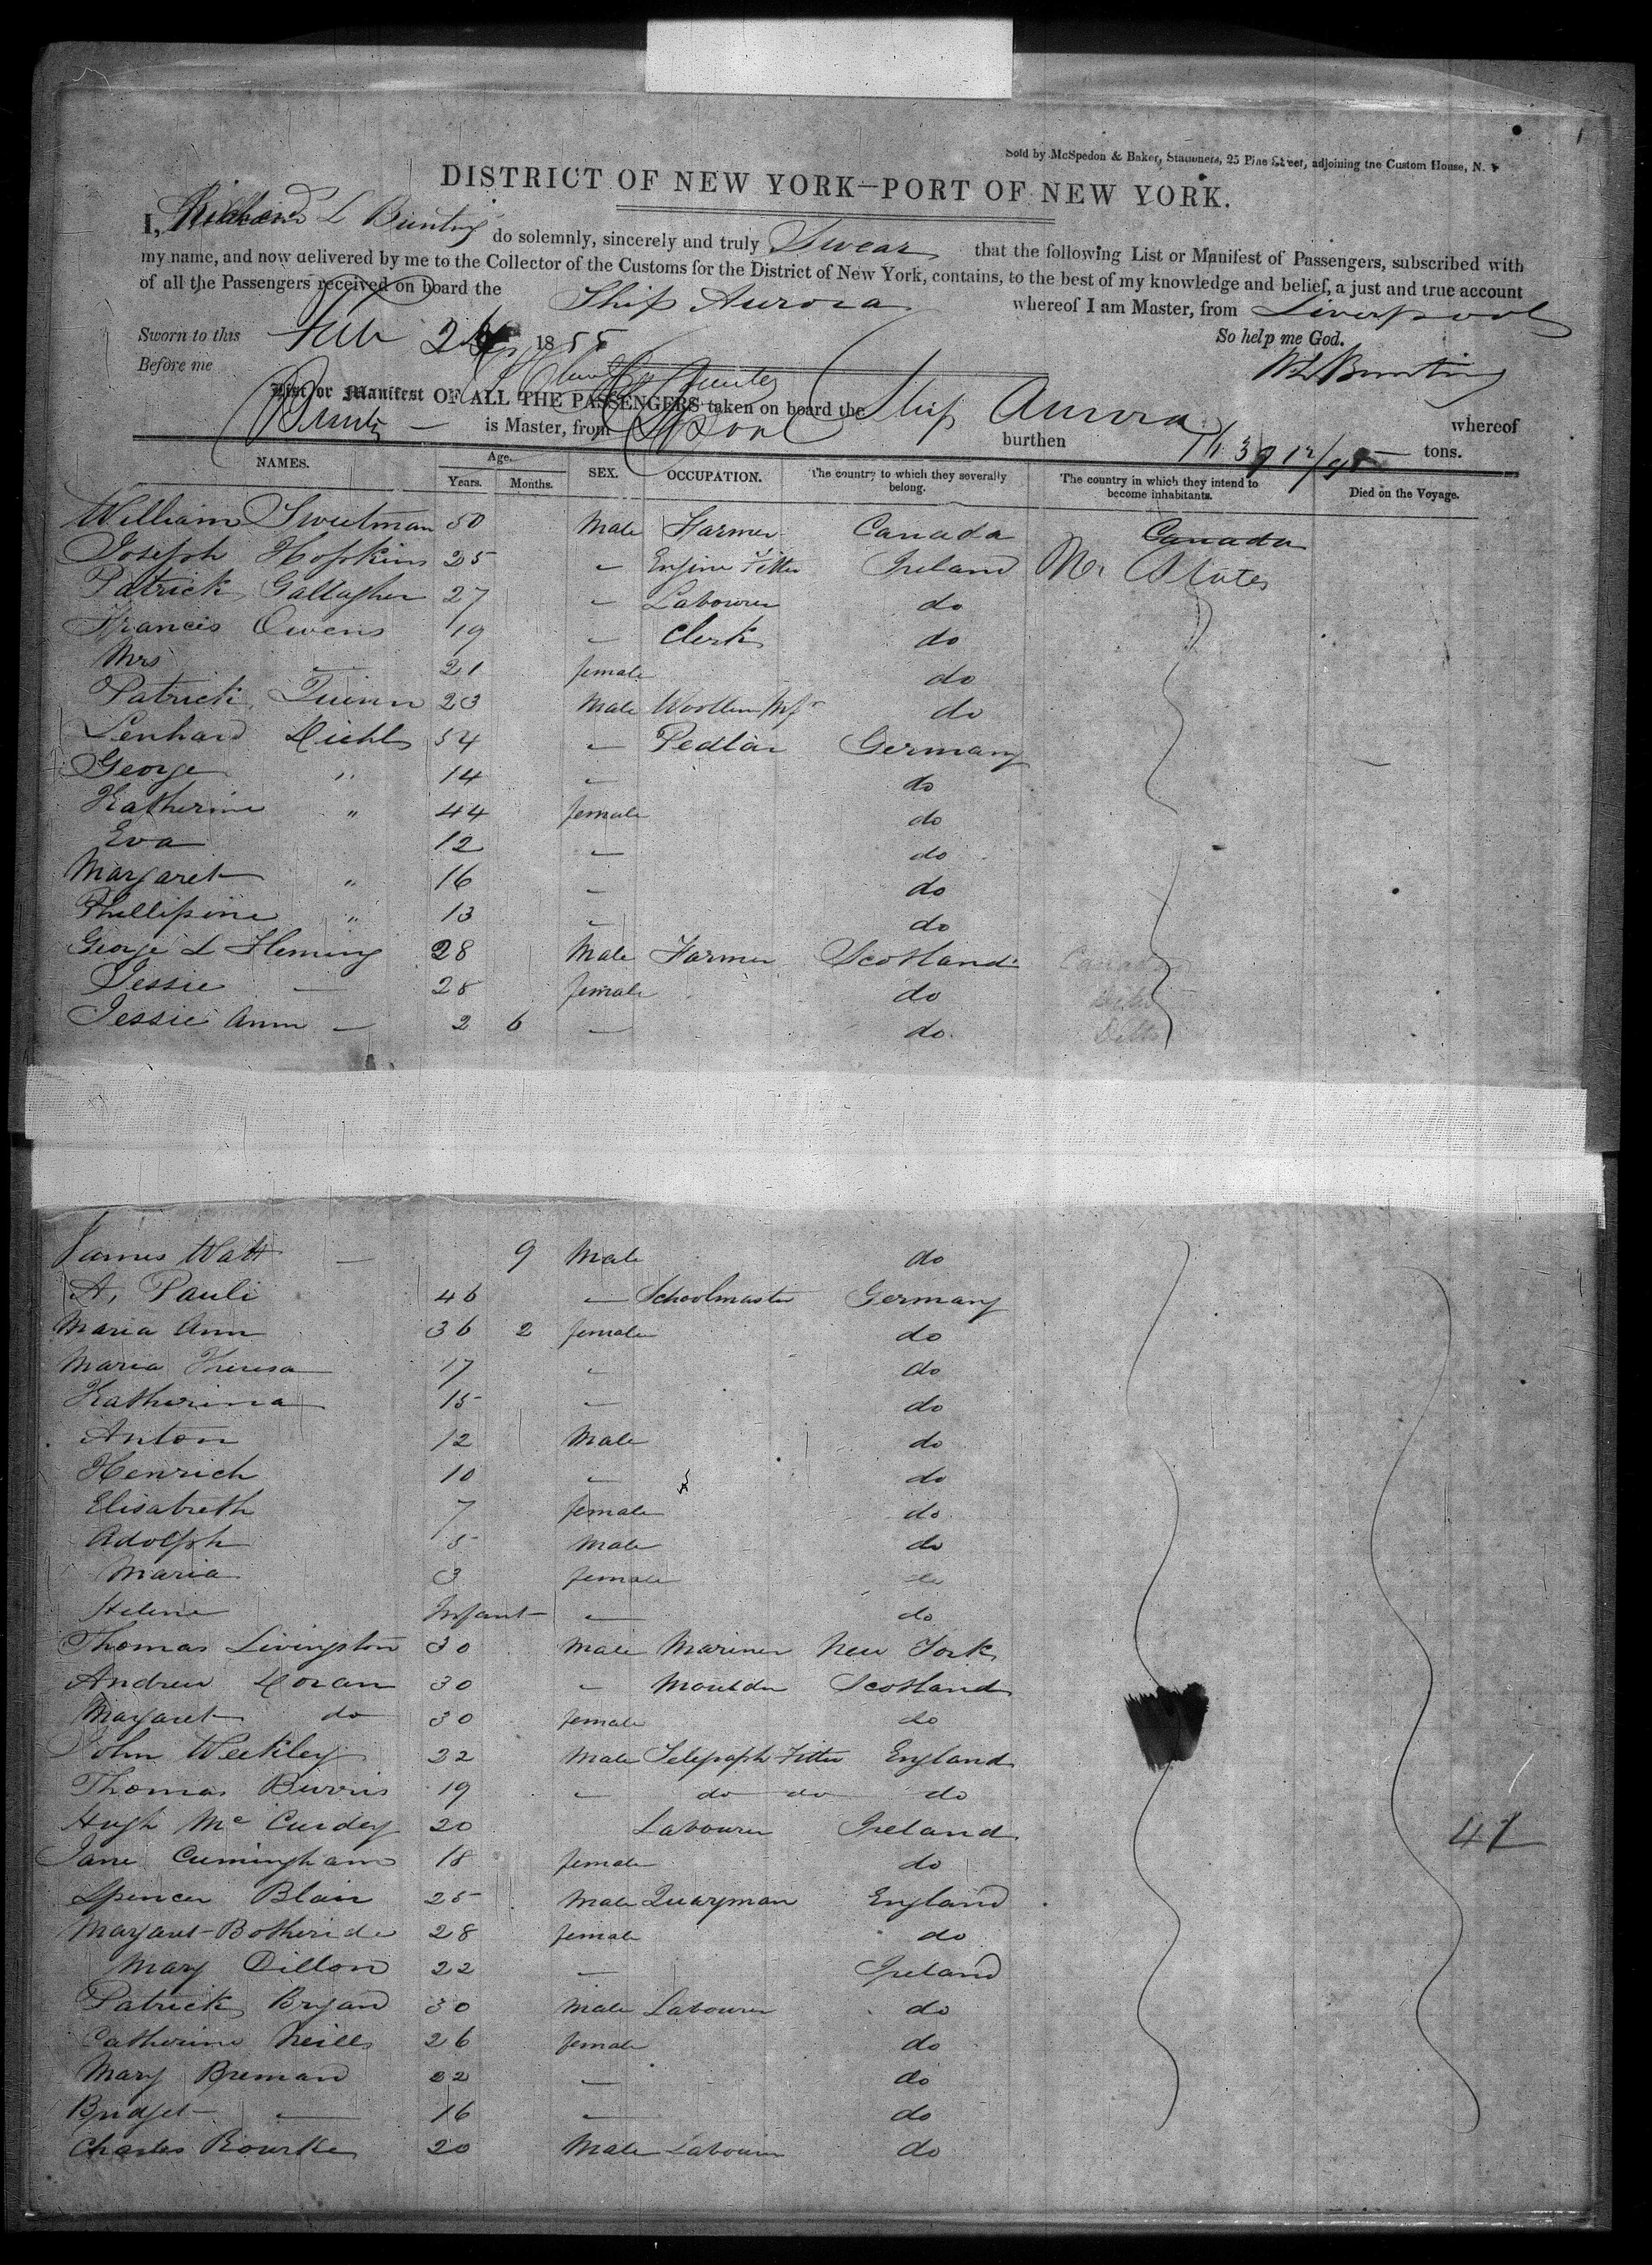 Sold by McSpedon & Baker, Stationers, 25 Pine Street, adjoining the Custom House, N. Y
DISTRICT OF NEW YORK—PORT OF NEW YORK.
I, Richard L Bunting do solemnly, sincerely and truly Swear that the following List or Manifest of Passengers, subscribed with
my name, and now delivered by me to the Collector of the Customs for the District of New York, contains, to the best of my knowledge and belief, a just and true account
of all the Passengers received on board the Ship Aurora whereof I am Master, from Liverpool
Sworn to this Feb 1855 So help me God.
Before me Bunting
List or Manifest OF ALL THE PASSENGERS taken on board the Ship Aurora whereof
Bunting is Master, from burthen tons.
NAMES. Age. Years. Months. SEX. OCCUPATION. The country to which they severally belong. The country in which they intend to become inhabitants. Died on the Voyage.
William Sweetman 50 Male Farmer Canada Canada
Joseph Hopkins 25 " Engine Fitter Ireland States
Patrick Gallagher 27 " Labourer do
Francis Owens 19 " Clerk do
Mrs — 21 female do
Patrick Quinn 23 Male Woollen Mfr do
Lenhard Diehl 54 " Pedlar Germany
George " 14 " do
Katherine " 44 female do
Eva 12 " do
Margaret " 16 " do
Phillipine " 13 " do
George L Fleming 28 Male Farmer Scotland Canada
Jessie — 28 female do Ditto
Jessie Ann — 2 6 — do Ditto
James Watt — 9 Male do
A. Pauli 46 — Schoolmaster Germany
Maria Ann 36 2 female do
Maria Theresa 17 " do
Katherina 15 — do
Anton 12 Male do
Henrich 10 — do
Elisabeth 7 female do
Adolph 5 Male do
Maria 3 female do
Helene Infant — do
Thomas Livingston 30 Male Mariner New York
Andrew Doran 30 " Moulder Scotland
Margaret do 30 female do
John Weekley 32 Male Telegraph Fitter England
Thomas Burris 19 " do do do
Hugh Mc Curdey 20 Labourer Ireland
Jane Cumingham 18 female do
Spencer Blair 25 Male Quaryman England
Margaret Botheride 28 female do
Mary Dillon 22 — Ireland
Patrick Bryan 30 Male Labourer do
Catherine Neill 26 female do
Mary Brenan 22 — do
Bridget — 16 — do
Charles Rourke 20 Male Labourer do